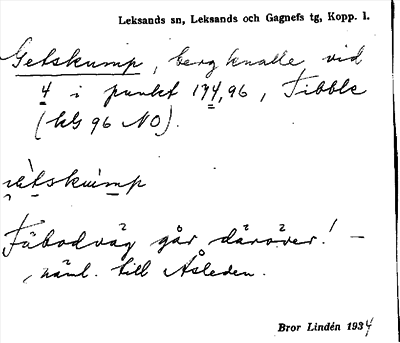 Leksands sn, Leksands och Gagnefs tg, Kopp. l.
Getskump, bergknalle vid
4 i punkt 174,96, Tibble
(kG 96 NO).
Fäbodväg går däröver! –
näml. till Åsleden.
Bror Lindén 1934